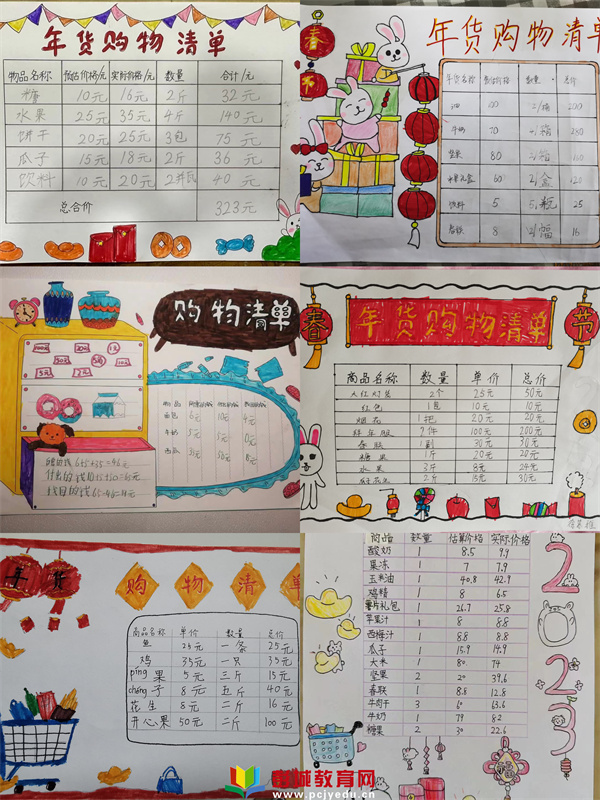 年货购物清单
物品名称 估估价格/元 实际价格/元 数量 合计/元
糖 10元 16元 2斤 32元
水果 25元 35元 4斤 140元
饼干 20元 25元 3包 75元
瓜子 15元 18元 2斤 36元
饮料 10元 20元 2瓶 40元
总合价 323元
春节
年货购物清单
年货名称 数量 总价
油 100 2/箱 200
牛奶 70 /箱
坚果 80 2/箱 160
60 2/盒 120
饮料 5 5/瓶 25
春联 8 2/幅 16
购物清单
物品
面包 6元 10元 4元
牛奶 5元 5元 0元
西瓜
春节
年货购物清单
商品名称 数量 单价 总价
大红灯笼 2个 25元 50元
红包 1包 10元 10元
烟花 1把 20元 20元
拜年服 2件 100元 200元
春联 1副 30元 30元
糖果 1斤 20元 20元
水果 3斤 8元 24元
2斤 15元 30元
年货
购物清单
商品名称 单价 数量 总价
鱼 25元 一条 25元
鸡 35元 一只 35元
píng果 5元 三斤 15元
chéng子 8元 五斤 40元
花生 8元 二斤 16元
开心果 50元 二斤 100元
商品 数量 估算价格 实际价格
酸奶 1 8.5 9.9
果冻 1 7 7.9
玉米油 1 40.8 42.9
鸡精 1 8 6.5
薯片礼包 1 26.7 25.8
苹果汁 1 8 8.8
西梅汁 1 8.8 8.8
瓜子 1 15.9 14.9
大米 1 80 74
坚果 2 20 39.6
春联 1 8.8 12.8
牛肉干 3 60 63.6
牛奶 1 79 82
糖果 2 30 22.6
2023
教育网
www.pcjyedu.cn